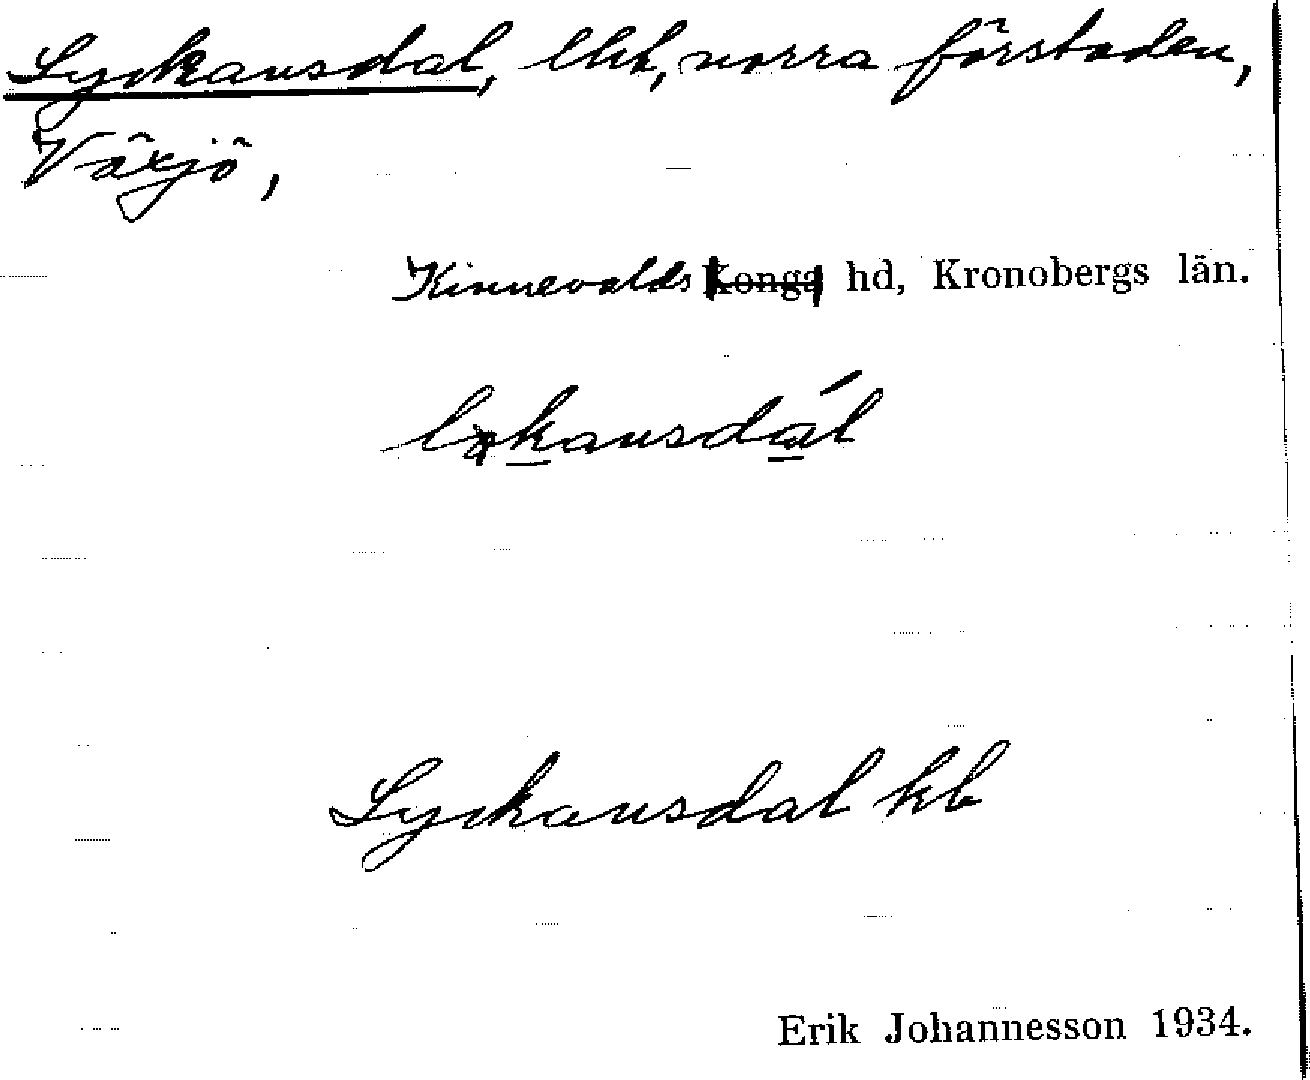 Lyckansdal, lht, norra förstaden,
Växjö,
Kinnevalds Konga hd, Kronobergs län.
Lyckansdal kb
Erik Johannesson 1934.